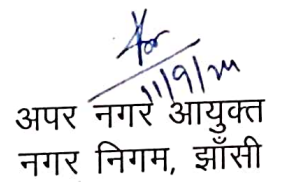 11/9/24
अपर नगर आयुक्त
नगर निगम, झाँसी